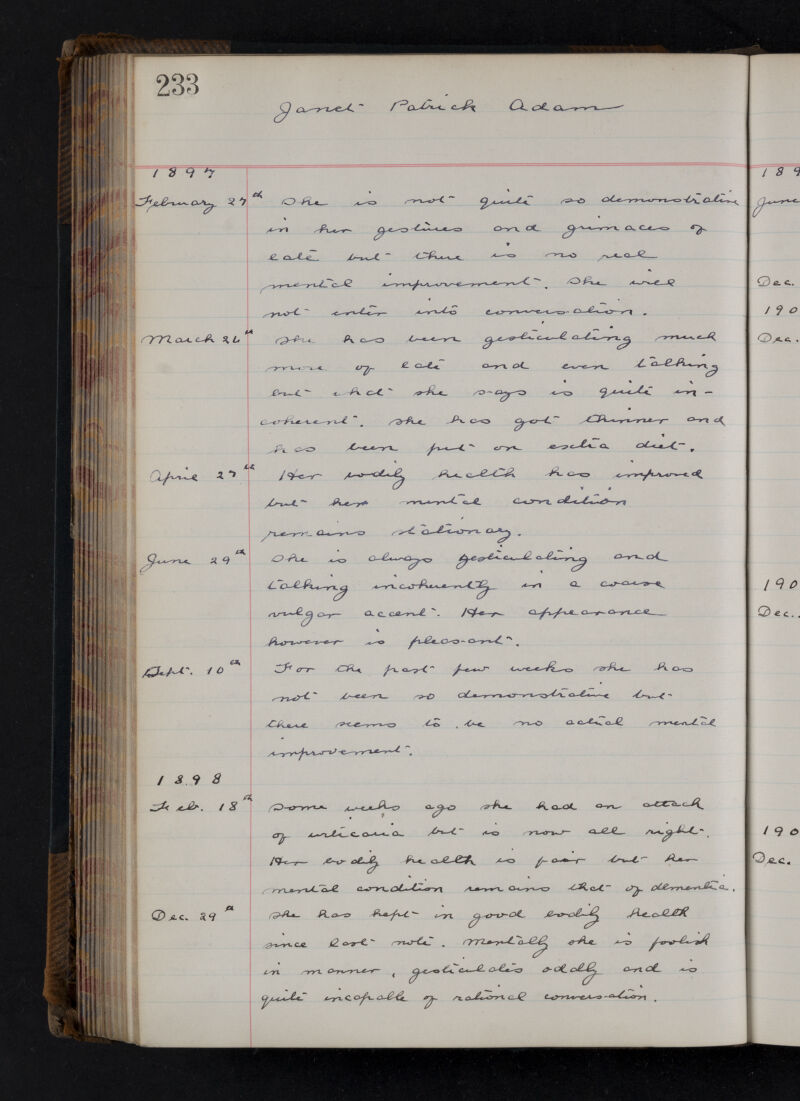 233
Janet Patrick Adam
1897
February 27th She is not quite so demonstrative
in her gestures and grimaces of
late but there is no real
mental improvement. She will
not enter into conversation.
March 26th She has been gesticulating much
more of late and even talking
but what she says is quite in-
coherent. She has got thinner and
has been put on extra diet.
April 27th Her bodily health has improved
but her mental condition
remains stationary.
June 29th She is always gesticulating and
talking incoherently in a coarse
vulgar accent. Her appearance
however is pleasant.
Sept. 10th For the past few weeks she has
not been so demonstrative but
there seems to be no actual mental
improvement.
1898
Feb. 18th Some weeks ago she had an attack
of urticaria but is now all right.
Her bodily health is fair but her
mental condition remains that of dementia.
Dec. 29th She has kept in good bodily health
since last note. Mentally she is foolish
in manner, gesticulates oddly and is
quite incapable of rational conversation.
189
June
Dec.
190
Dec.
190
Dec.
190
Dec.